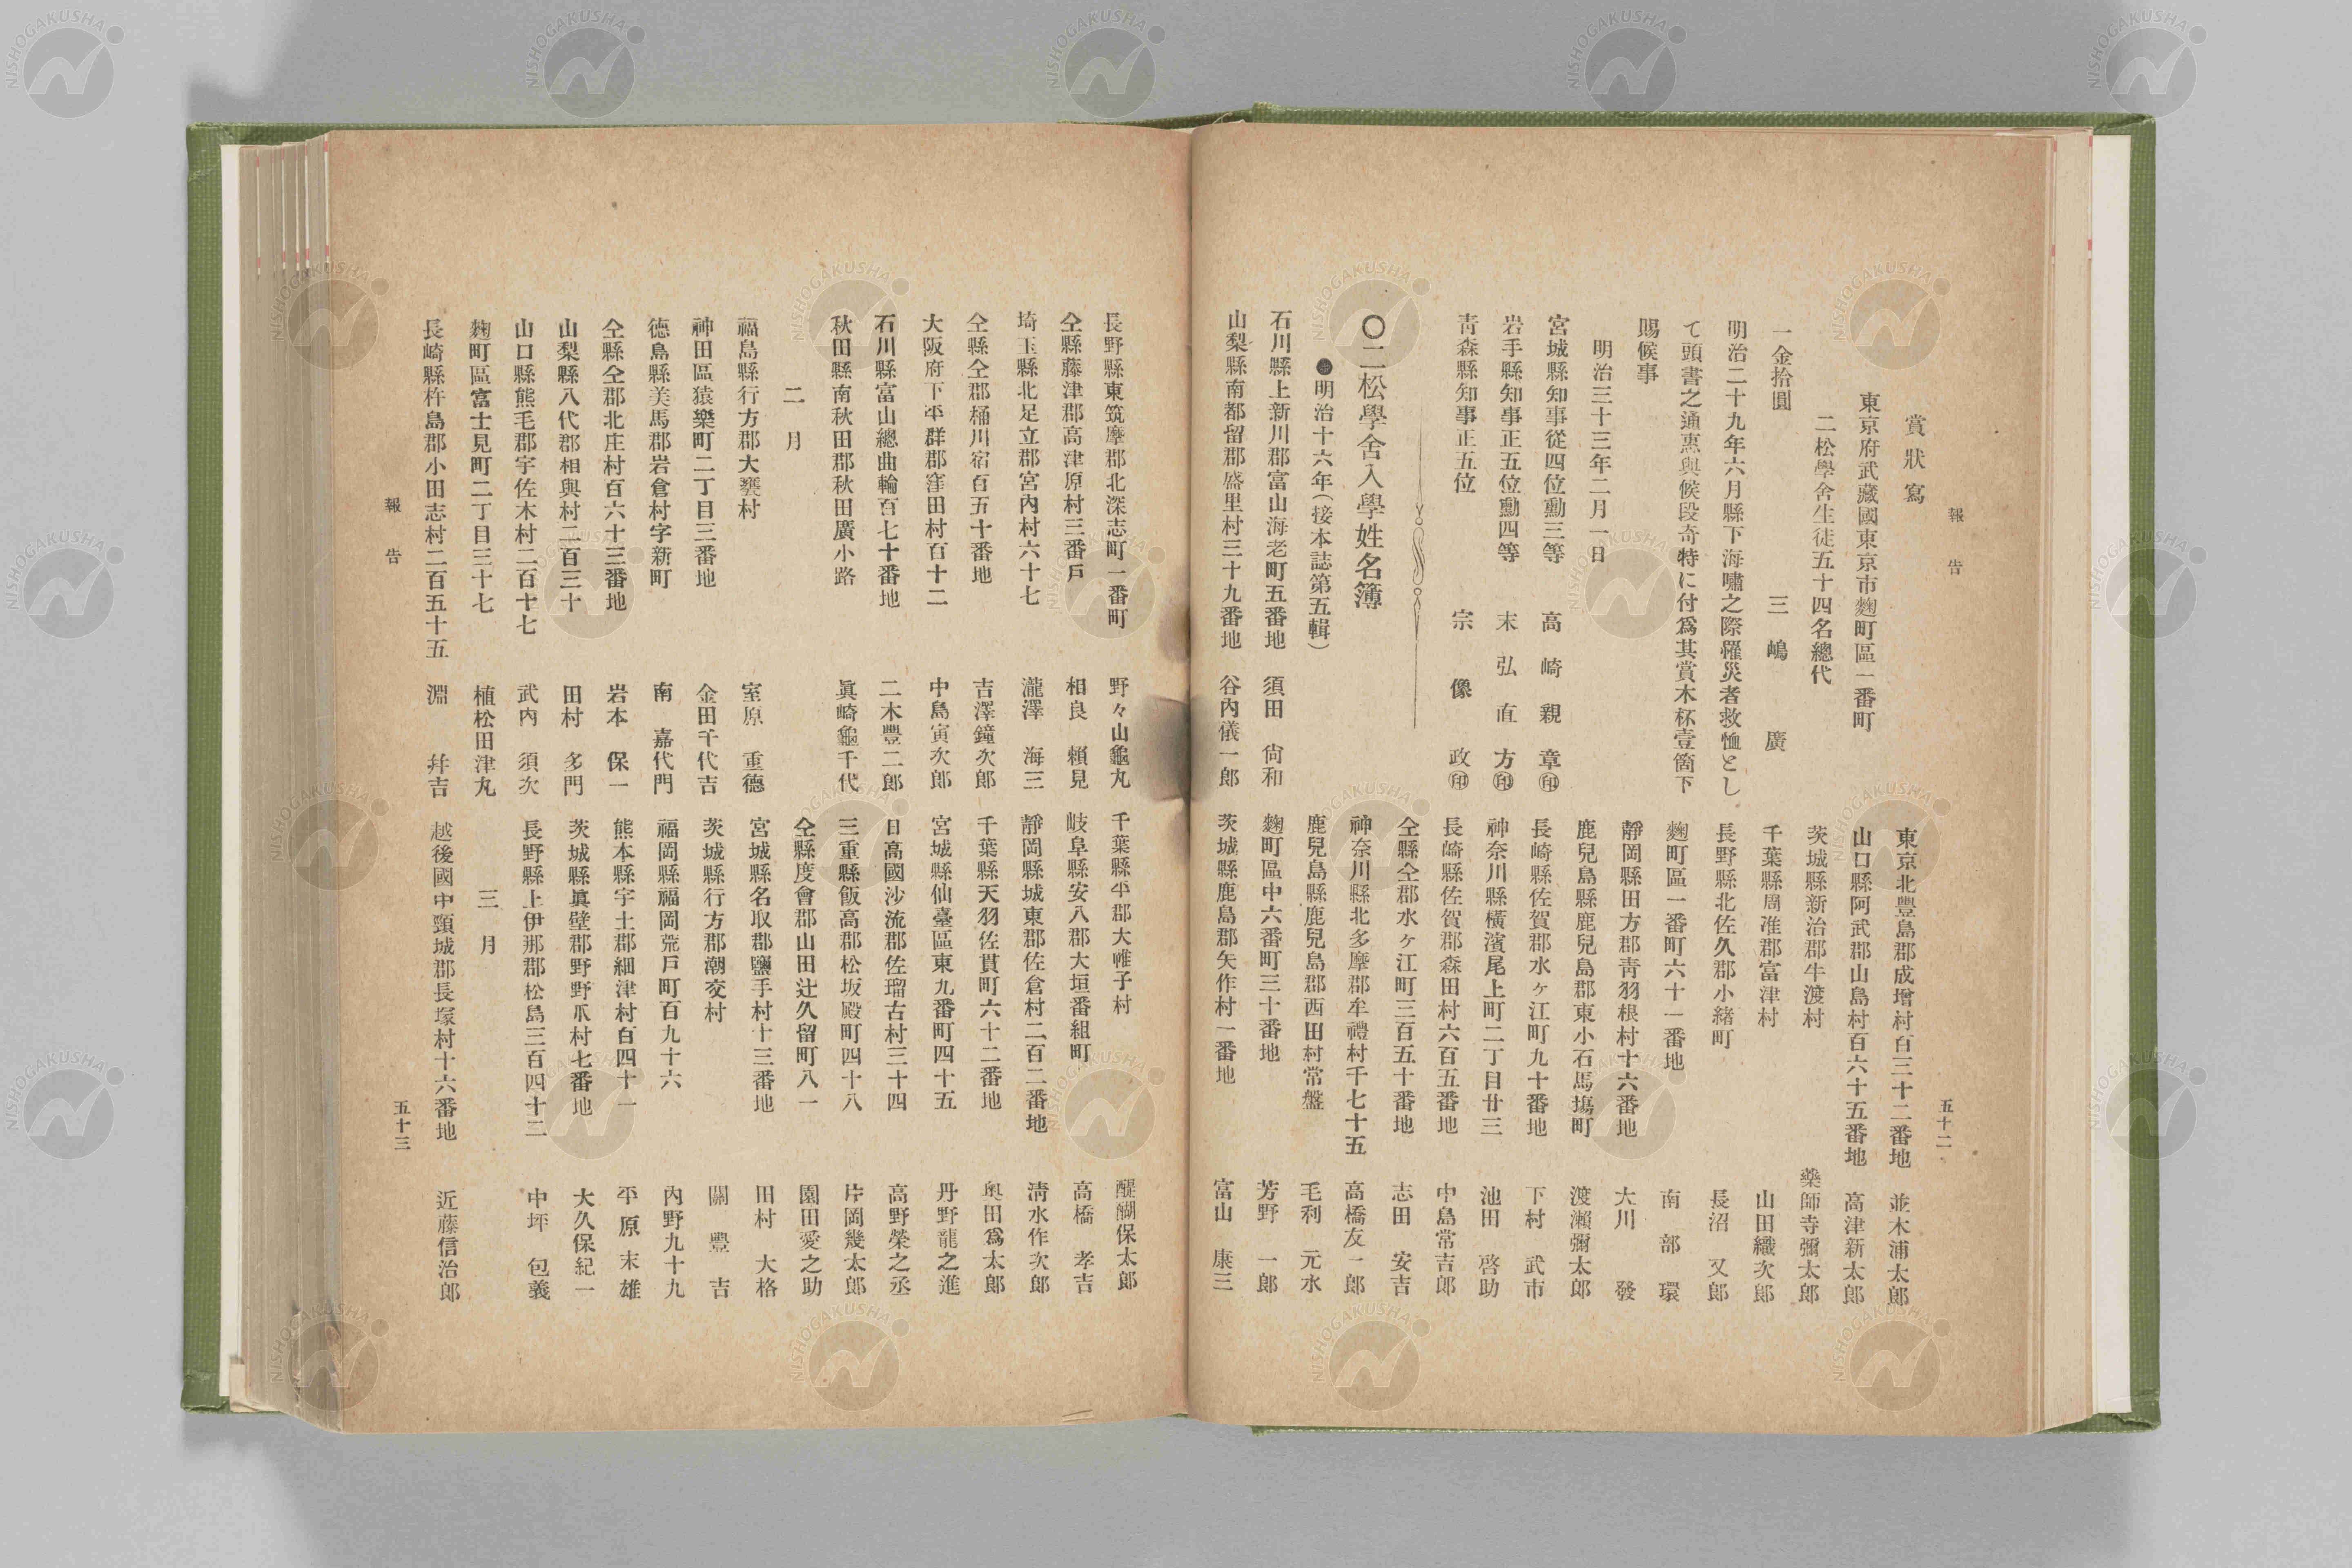 報告
五十二
賞狀寫
東京府武藏國東京市麴町區一番町
二松學舍生徒五十四名總代
一金拾圓　三嶋　廣
明治二十九年六月縣下海嘯之際罹災者救恤とし
て頭書之通惠與候段奇特に付爲其賞木杯壹箇下
賜候事
明治三十三年二月一日
宮城縣知事從四位勳三等　高崎親章㊞
岩手縣知事正五位勳四等　末弘直方㊞
靑森縣知事正五位　宗像　政㊞
〇二松學舍入學姓名簿
●明治十六年（接本誌第五輯）
石川縣上新川郡富山海老町五番地　須田　尙和
山梨縣南都留郡盛里村三十九番地　谷內儀一郎
東京北豐島郡成增村百三十二番地　並木浦太郎
山口縣阿武郡山島村百六十五番地　高津新太郎
茨城縣新治郡牛渡村　藥師寺彌太郎
千葉縣周准郡富津村　山田織次郎
長野縣北佐久郡小緖町　長沼　又郎
麴町區一番町六十一番地　南部　環
靜岡縣田方郡靑羽根村十六番地　大川　發
鹿兒島縣鹿兒島郡東小石馬塲町　渡瀨彌太郎
長崎縣佐賀郡水ヶ江町九十番地　下村　武市
神奈川縣橫濱尾上町二丁目廿三　池田　啓助
長崎縣佐賀郡森田村六百五番地　中島常吉郎
仝縣仝郡水ヶ江町三百五十番地　志田　安吉
神奈川縣北多摩郡牟禮村千七十五　高橋友一郎
鹿兒島縣鹿兒島郡西田村常盤　毛利　元水
麴町區中六番町三十番地　芳野　一郎
茨城縣鹿島郡矢作村一番地　富山　康三
長野縣東筑摩郡北深志町一番町　野々山龜丸
仝縣藤津郡高津原村三番戶　相良　賴見
埼玉縣北足立郡宮內村六十七　瀧澤　海三
仝縣仝郡桶川宿百五十番地　吉澤鐘次郎
大阪府下平群郡窪田村百十二　中島寅次郎
石川縣富山總曲輪百七十番地　二木豐二郎
秋田縣南秋田郡秋田廣小路　眞崎龜千代
二月
福島縣行方郡大甕村　室原　重德
神田區猿樂町二丁目三番地　金田千代吉
德島縣美馬郡岩倉村字新町　南　嘉代門
仝縣仝郡北庄村百六十三番地　岩本　保一
山梨縣八代郡相興村二百三十　田村　多門
山口縣熊毛郡宇佐木村二百十七　武內　須次
麴町區富士見町二丁目三十七　植松田津丸
長崎縣杵島郡小田志村二百五十五　淵　幷吉
千葉縣平郡大帷子村　醍醐保太郎
岐阜縣安八郡大垣番組町　高橋　孝吉
靜岡縣城東郡佐倉村二百二番地　淸水作次郎
千葉縣天羽佐貫町六十二番地　奧田爲太郎
宮城縣仙臺區東九番町四十五　丹野龍之進
日高國沙流郡佐瑠古村三十四　高野榮之丞
三重縣飯高郡松坂殿町四十八　片岡幾太郎
仝縣度會郡山田辻久留町八一　園田愛之助
宮城縣名取郡鹽手村十三番地　田村　大格
茨城縣行方郡潮來村　關　豐吉
福岡縣福岡荒戶町百九十六　內野九十九
熊本縣宇土郡細津村百四十一　平原末雄
茨城縣眞壁郡野野爪村七番地　大久保紀一
長野縣上伊那郡松島三百四十二　中坪　包義
三月
越後國中頸城郡長塚村十六番地　近藤信治郎
報告
五十三